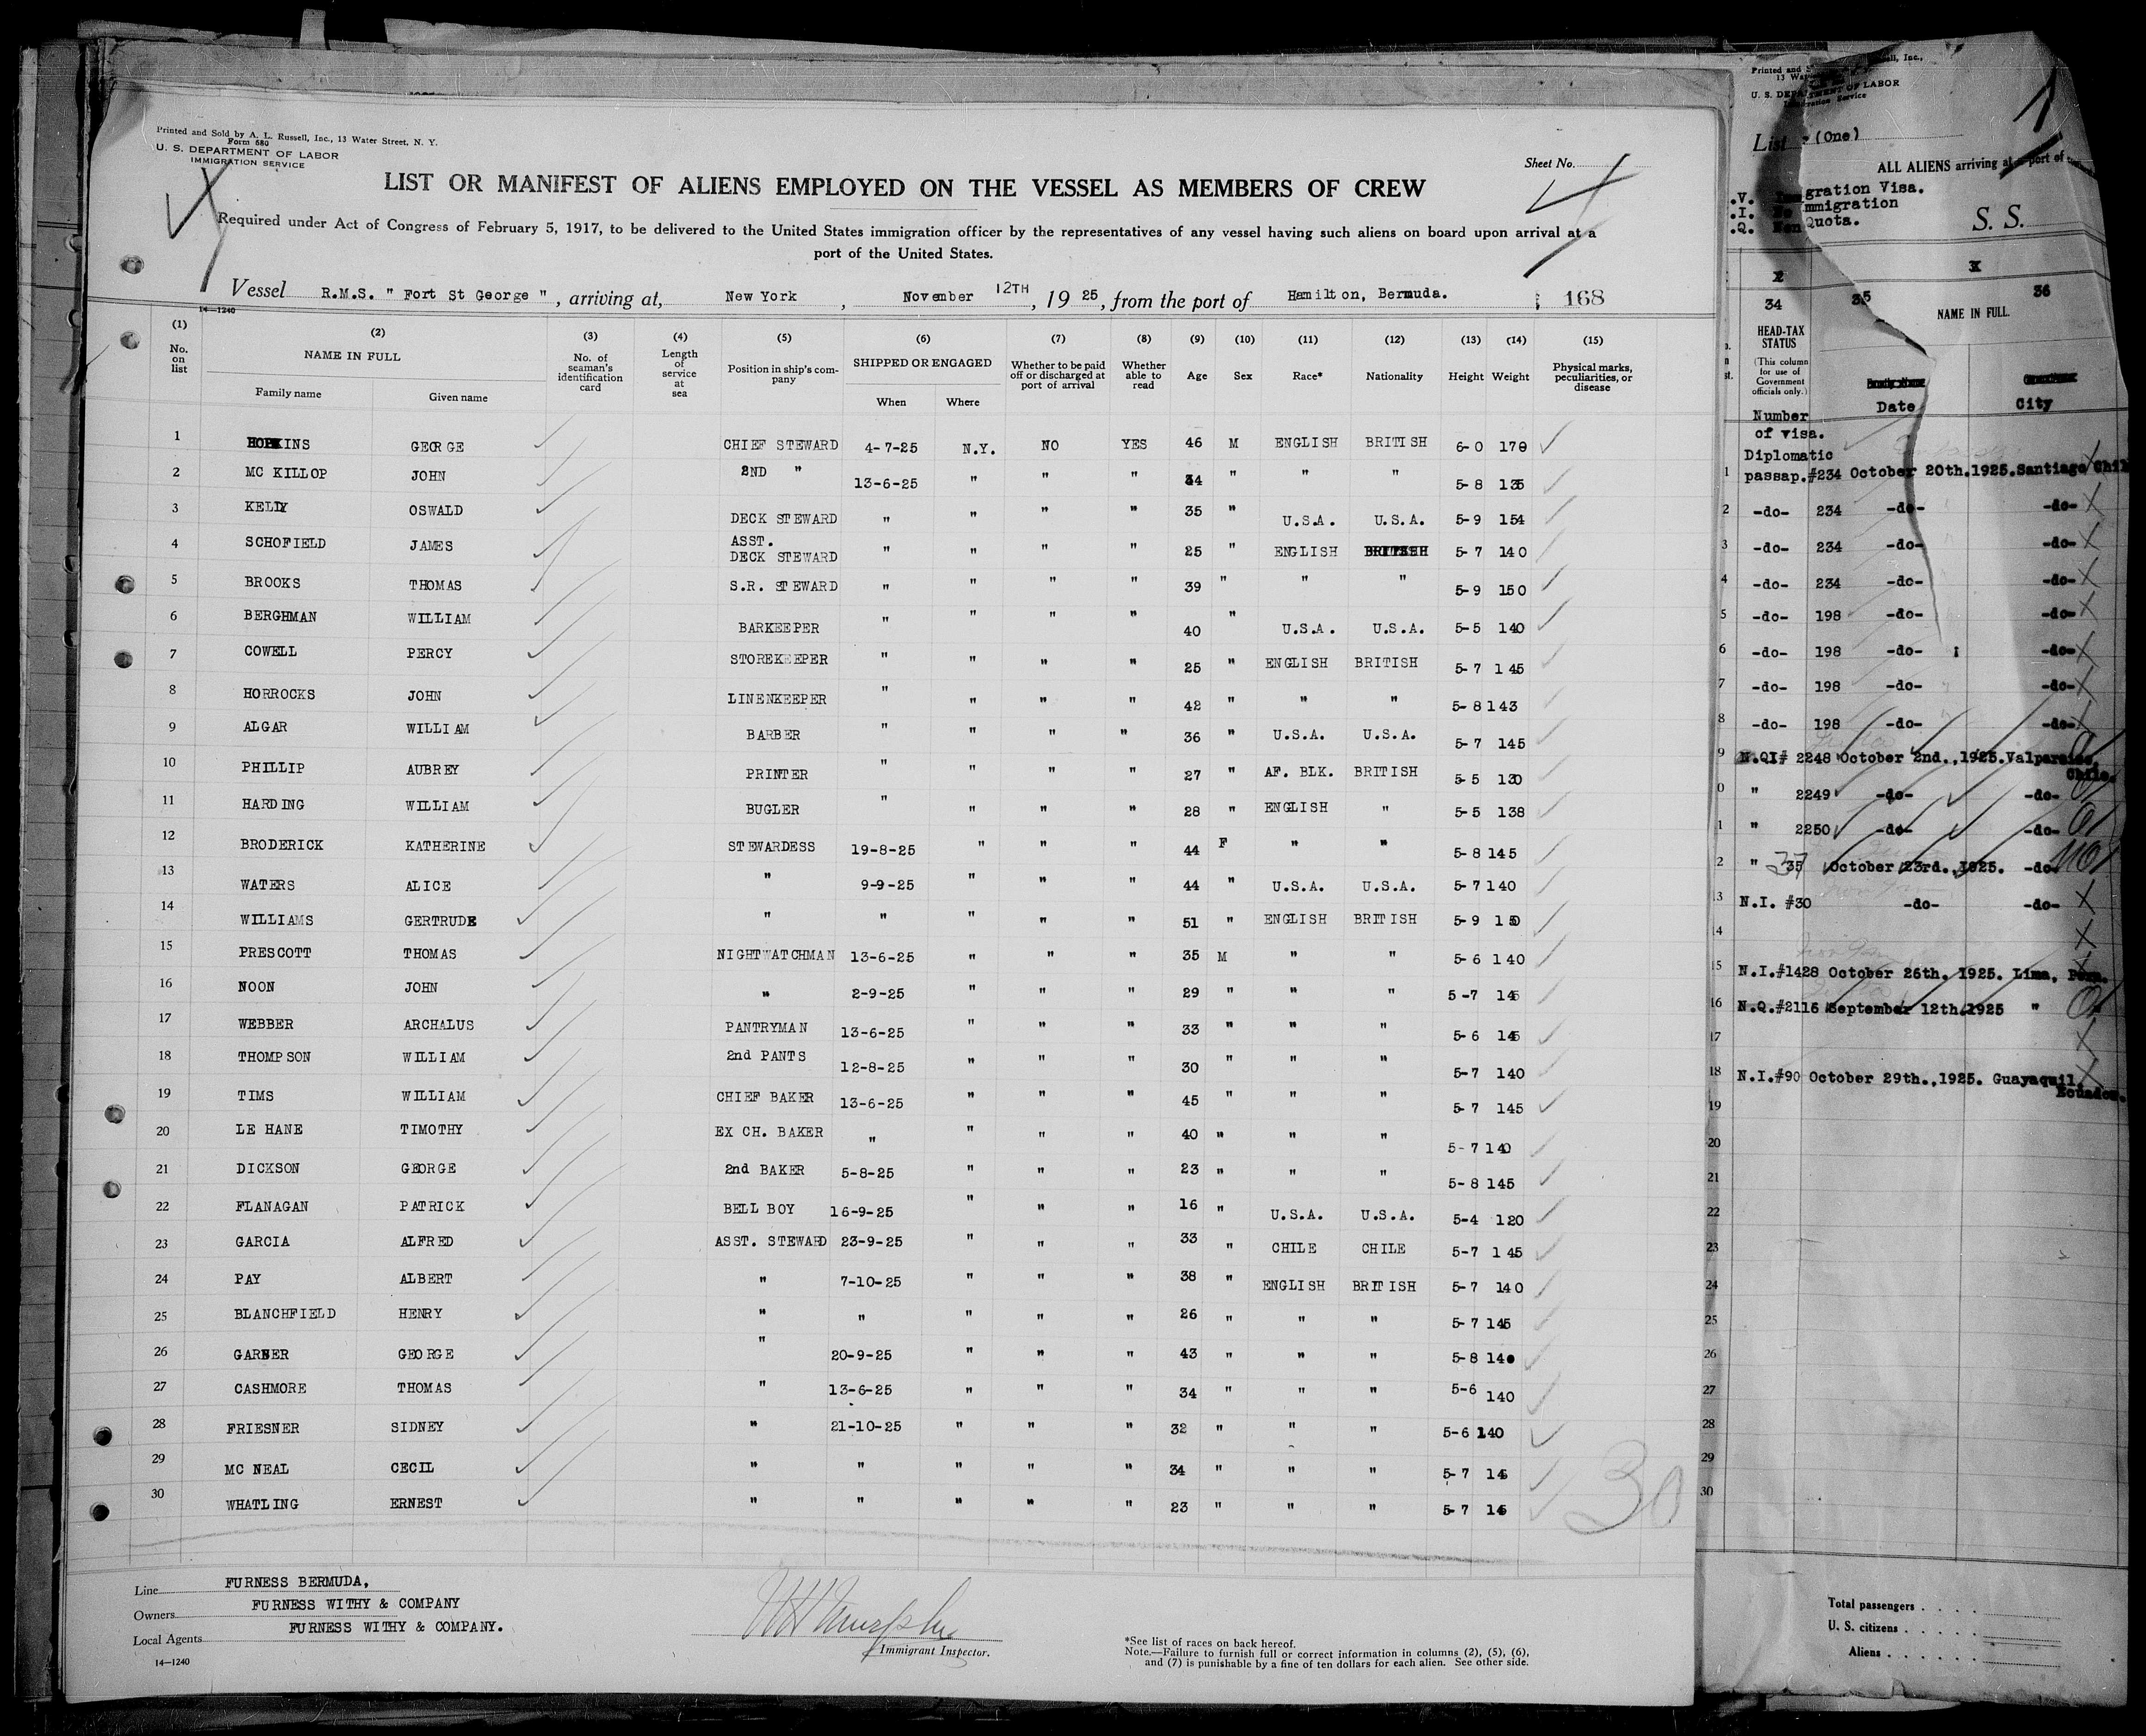 Printed and Sold by A. L. Russell, Inc., 13 Water Street, N. Y.
Form 680
U. S. DEPARTMENT OF LABOR
IMMIGRATION SERVICE
Sheet No.
LIST OR MANIFEST OF ALIENS EMPLOYED ON THE VESSEL AS MEMBERS OF CREW
Required under Act of Congress of February 5, 1917, to be delivered to the United States immigration officer by the representatives of any vessel having such aliens on board upon arrival at a
port of the United States.
Vessel R.M.S. " Fort St George ", arriving at, New York, November 12TH, 1925, from the port of Hamilton, Bermuda. 168
14—1240
(1) No. on list (2) NAME IN FULL Family name Given name (3) No. of seaman's identification card (4) Length of service at sea (5) Position in ship's company (6) SHIPPED OR ENGAGED When Where (7) Whether to be paid off or discharged at port of arrival (8) Whether able to read (9) Age (10) Sex (11) Race* (12) Nationality (13) Height (14) Weight (15) Physical marks, peculiarities, or disease
1 HOPKINS GEORGE CHIEF STEWARD 4-7-25 N.Y. NO YES 46 M ENGLISH BRITISH 6-0 170
2 MC KILLOP JOHN 2ND " 13-6-25 " " " 34 " " " 5-8 135
3 KELLY OSWALD DECK STEWARD " " " " 35 " U.S.A. U.S.A. 5-9 154
4 SCHOFIELD JAMES ASST. DECK STEWARD " " " " 25 " ENGLISH BRITISH 5-7 140
5 BROOKS THOMAS S.R. STEWARD " " " " 39 " " " 5-9 150
6 BERGHMAN WILLIAM BARKEEPER " " " " 40 " U.S.A. U.S.A. 5-5 140
7 COWELL PERCY STOREKEEPER " " " " 25 " ENGLISH BRITISH 5-7 145
8 HORROCKS JOHN LINENKEEPER " " " " 42 " " " 5-8 143
9 ALGAR WILLIAM BARBER " " " " 36 " U.S.A. U.S.A. 5-7 145
10 PHILLIP AUBREY PRINTER " " " " 27 " AF. BLK. BRITISH 5-5 130
11 HARDING WILLIAM BUGLER " " " " 28 " ENGLISH " 5-5 138
12 BRODERICK KATHERINE STEWARDESS 19-8-25 " " " 44 F " " 5-8 145
13 WATERS ALICE " 9-9-25 " " " 44 " U.S.A. U.S.A. 5-7 140
14 WILLIAMS GERTRUDE " " " " " 51 " ENGLISH BRITISH 5-9 150
15 PRESCOTT THOMAS NIGHTWATCHMAN 13-6-25 " " " 35 M " " 5-6 140
16 NOON JOHN " 2-9-25 " " " 29 " " " 5-7 145
17 WEBBER ARCHALUS PANTRYMAN 13-6-25 " " " 33 " " " 5-6 145
18 THOMPSON WILLIAM 2nd PANTS 12-8-25 " " " 30 " " " 5-7 140
19 TIMS WILLIAM CHIEF BAKER 13-6-25 " " " 45 " " " 5-7 145
20 LE HANE TIMOTHY EX CH. BAKER " " " " 40 " " " 5-7 140
21 DICKSON GEORGE 2nd BAKER 5-8-25 " " " 23 " " " 5-8 145
22 FLANAGAN PATRICK BELL BOY 16-9-25 " " " 16 " U.S.A. U.S.A. 5-4 120
23 GARCIA ALFRED ASST. STEWARD 23-9-25 " " " 33 " CHILE CHILE 5-7 145
24 PAY ALBERT " 7-10-25 " " " 38 " ENGLISH BRITISH 5-7 140
25 BLANCHFIELD HENRY " " " " " 26 " " " 5-7 145
26 GARNER GEORGE " 20-9-25 " " " 43 " " " 5-8 140
27 CASHMORE THOMAS " 13-6-25 " " " 34 " " " 5-6 140
28 FRIESNER SIDNEY " 21-10-25 " " " 32 " " " 5-6 140
29 MC NEAL CECIL " " " " " 34 " " " 5-7 145
30 WHATLING ERNEST " " " " " 23 " " " 5-7 145
30
Line FURNESS BERMUDA,
Owners FURNESS WITHY & COMPANY
Local Agents FURNESS WITHY & COMPANY.
14—1240
Immigrant Inspector.
*See list of races on back hereof.
Note.—Failure to furnish full or correct information in columns (2), (5), (6),
and (7) is punishable by a fine of ten dollars for each alien. See other side.
Printed and
U. S. DEPARTMENT OF LABOR
Immigration Service
List (One)
ALL ALIENS arriving at a port of
gration Visa.
mmigration
Quota.
S. S.
34 35 36
HEAD-TAX STATUS
(This column for use of Government officials only.)
NAME IN FULL.
Date City
Number of visa.
Diplomatic
1 passap.#234 October 20th.1925.Santiago Chil
2 -do- 234 -do- -do-
3 -do- 234 -do- -do-
4 -do- 234 -do- -do-
5 -do- 198 -do- -do-
6 -do- 198 -do- -do-
7 -do- 198 -do- -do-
8 -do- 198 -do- -do-
9 N.QI# 2248 October 2nd.,1925.Valparaiso, Chile.
0 " 2249 -do- -do-
1 " 2250 -do- -do-
2 " 35 October 23rd.,1925. -do-
13 N.I. #30 -do- -do-
14
15 N.I.#1428 October 26th. 1925. Lima, Peru.
16 N.Q.#2116 September 12th.1925 "
17
18 N.I.#90 October 29th.,1925. Guayaquil, Ecuador.
19
20
21
22
23
24
25
26
27
28
29
30
Total passengers
U. S. citizens
Aliens